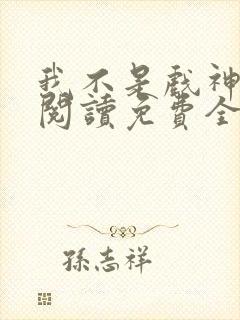 我不是戲神
閱讀免費全
孫志祥